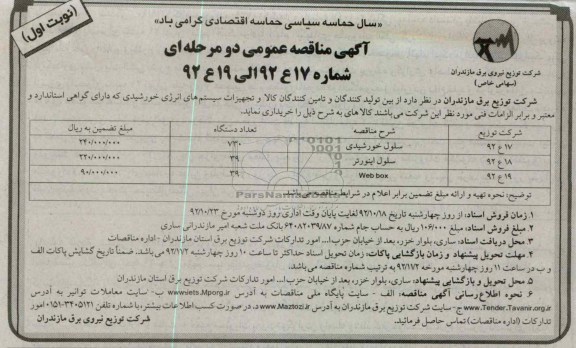 «سال حماسه سیاسی حماسه اقتصادی گرامی باد»
(نوبت اول)
آگهی مناقصه عمومی دو مرحله ای
شماره ۱۷ع ۹۲ الی ۱۹ع ۹۲
شرکت توزیع نیروی برق مازندران
(سهامی خاص)
شرکت توزیع برق مازندران در نظر دارد از بین تولید کنندگان و تامین کنندگان کالا و تجهیزات سیستم های انرژی خورشیدی که دارای گواهی استاندارد و
معتبر و برابر الزامات فنی مورد نظر این شرکت می باشند کالاهای به شرح ذیل را خریداری نماید.
شرکت توزیع شرح مناقصه تعداد دستگاه مبلغ تضمین به ریال
۱۷ع ۹۲ سلول خورشیدی ۷۳۰ ۲۴۰/۰۰۰/۰۰۰
۱۸ع ۹۲ سلول اینورتر ۳۹ ۲۲۰/۰۰۰/۰۰۰
۱۹ع ۹۲ Web box ۳۹ ۹۰/۰۰۰/۰۰۰
توضیح: نحوه تهیه و ارائه مبلغ تضمین برابر اعلام در شرایط مناقصه می باشد.
۱. زمان فروش اسناد: از روز چهارشنبه تاریخ ۹۲/۱۰/۱۸ لغایت پایان وقت اداری روز دوشنبه مورخ ۹۲/۱۰/۲۳
۲. مبلغ فروش اسناد: مبلغ ۱۰۶/۰۰۰ ریال به حساب جام شماره ۶۴۰۸۲۰۳۹۱۸۷ بانک ملت شعبه امیر مازندرانی ساری
۳. محل دریافت اسناد: ساری، بلوار خزر، بعد از خیابان حزب ا... امور تدارکات شرکت توزیع برق استان مازندران - اداره مناقصات
۴. مهلت تحویل پیشنهاد و زمان بازگشایی پاکات: زمان تحویل اسناد حداکثر تا ساعت ۱۰ روز چهارشنبه ۹۲/۱۱/۲ می باشد. ضمناً تاریخ گشایش پاکات الف
و ب در ساعت ۱۱ روز چهارشنبه مورخه ۹۲/۱۱/۲ به ترتیب شماره مناقصه می باشد.
۵. محل تحویل و بازگشایی پیشنهاد: ساری، بلوار خزر، بعد از خیابان حزب ا... امور تدارکات شرکت توزیع برق استان مازندران
۶. نحوه اطلاع رسانی آگهی مناقصه: الف - سایت پایگاه ملی مناقصات به آدرس www.iets.Mporg.ir ب- سایت معاملات توانیر به آدرس
www.Tender.Tavanir.org.ir ج- سایت شرکت توزیع برق مازندران به آدرس www.Maztozi.ir د. در صورت کسب اطلاعات بیشتر، با شماره تلفن ۳۴۰۵۱۲۱-۰۱۵۱ امور
تدارکات (اداره مناقصات) تماس حاصل فرمائید.
شرکت توزیع نیروی برق مازندران